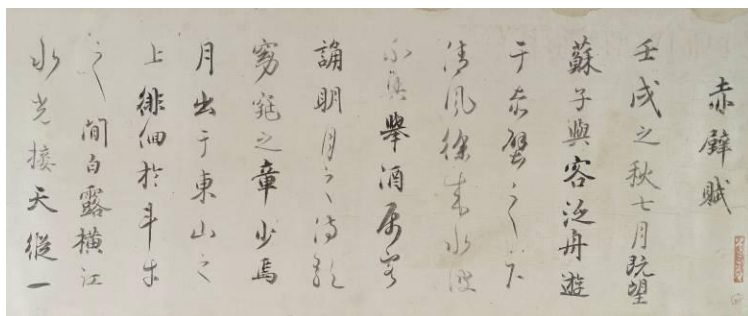 赤壁賦
壬戌之秋七月既望
蘇子與客泛舟遊
于赤壁之下
清風徐來水波
不興舉酒屬客
誦明月之詩歌
窈窕之章少焉
月出于東山之
上徘徊於斗牛
之間白露橫江
水光接天縱一